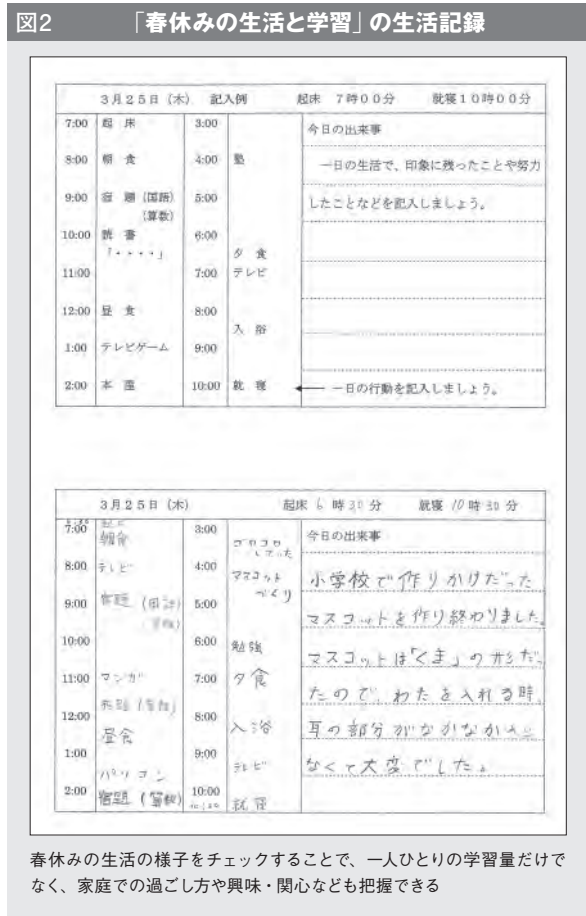 図2 「春休みの生活と学習」の生活記録
3月25日(木) 記入例 起床 7時00分 就寝10時00分
7:00 起 床 3:00 今日の出来事
8:00 朝 食 4:00 塾 一日の生活で、印象に残ったことや努力
9:00 宿 題(国語) 5:00 したことなどを記入しましょう。
(算数)
10:00 読 書 6:00
「・・・・」 夕 食
11:00 7:00 テレビ
12:00 昼 食 8:00
入 浴
1:00 テレビゲーム 9:00
2:00 本 屋 10:00 就 寝 ← 一日の行動を記入しましょう。
3月25日(木) 起床 6時30分 就寝 10時30分
7:00 朝食 3:00 ゴロゴロ 今日の出来事
していた
8:00 テレビ 4:00 マスコット 小学校で作りかけだった
づくり
9:00 宿題(国語) 5:00 マスコットを作り終わりました。
10:00 6:00 勉強 マスコットは「くま」の形だっ
11:00 マンガ 7:00 夕食 たので、わたを入れる時、
宿題(算数)
12:00 昼食 8:00 入浴 耳の部分がなかなか
1:00 9:00 テレビ なくて大変でした。
パソコン
2:00 宿題(算数) 10:00
10:30 就寝
春休みの生活の様子をチェックすることで、一人ひとりの学習量だけで
なく、家庭での過ごし方や興味・関心なども把握できる